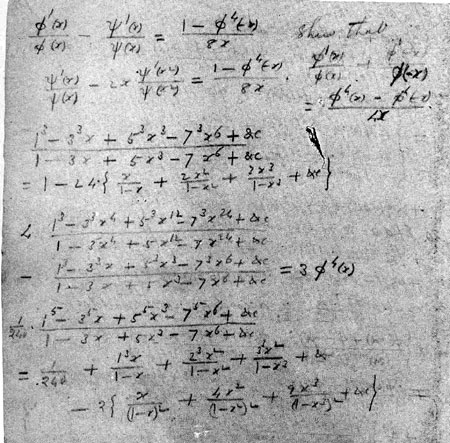 φ'(x)/φ(x) − ψ'(x)/ψ(x) = (1 − φ⁴(-x))/8x   Show that
ψ'(x)/ψ(x) − 2x ψ'(x²)/ψ(x²) = (1 − φ⁴(-x))/8x .   φ'(x)/φ(x) + φ'(-x)/φ(-x)
= (φ⁴(x) − φ⁴(-x))/4x
(1³ − 3³x + 5³x³ − 7³x⁶ + &c)/(1 − 3x + 5x³ − 7x⁶ + &c)
= 1 − 24{x/(1−x) + 2x²/(1−x²) + 3x³/(1−x³) + &c}
4 (1³ − 3³x⁴ + 5³x¹² − 7³x²⁴ + &c)/(1 − 3x⁴ + 5x¹² − 7x²⁴ + &c)
− (1³ − 3³x + 5³x³ − 7³x⁶ + &c)/(1 − 3x + 5x³ − 7x⁶ + &c) = 3φ⁴(x)
1/240 · (1⁵ − 3⁵x + 5⁵x³ − 7⁵x⁶ + &c)/(1 − 3x + 5x³ − 7x⁶ + &c)
= 1/240 + 1³x/(1−x) + 2³x²/(1−x²) + 3³x³/(1−x³) + &c
− 2{x/(1−x)² + 4x²/(1−x²)² + 9x³/(1−x³)² + &c}